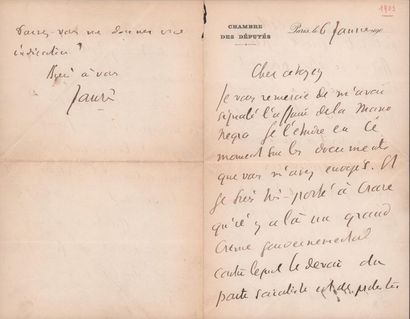 1903
CHAMBRE
DES DÉPUTÉS
Paris, le 6 Janvier 190
Cher citoyen
Je vous remercie de m'avoir
signalé l'affaire de la Mano
Negra. Je l'étudie en ce
moment sur les documents
que vous m'avez envoyés. Et
je suis très porté à croire
qu'il y a là un grand
crime gouvernemental
contre lequel le devoir du
parti socialiste est de protester
Pouvez-vous me donner une
indication?
Bien à vous
Jaurès